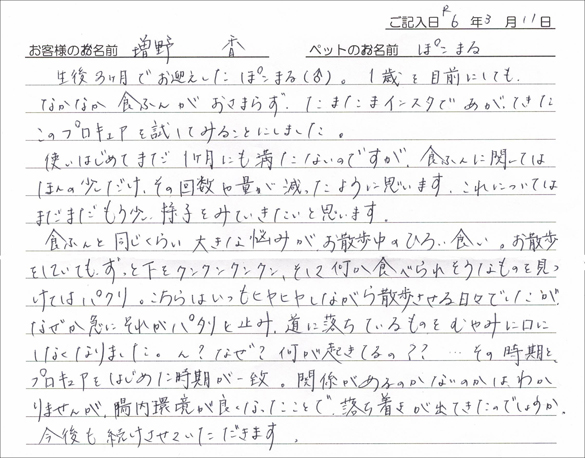 ご記入日 R6年3月11日
お客様のお名前 増野 香 ペットのお名前 ぽこまる
生後3ヶ月でお迎えしたぽこまる(♂)。1歳を目前にしても、
なかなか食ふんがおさまらず、たまたまインスタであがってきた
このプロキュアを試してみることにしました。
使いはじめてまだ1ヶ月にも満たないのですが、食ふんに関しては
ほんの少しだけ、その回数や量が減ったように思います。これについては
まだまだもう少し様子をみていきたいと思います。
食ふんと同じくらい大きな悩みがお散歩中のひろい食い。お散歩
をしていても、ずっと下をクンクンクンクン、そして何か食べられそうなものを見つ
けてはパクリ。こちらはいつもヒヤヒヤしながら散歩させる日々でしたが、
なぜか急にそれがパタリと止み、道に落ちているものをむやみに口に
しなくなりました。ん?なぜ?何が起きてるの??…その時期と、
プロキュアをはじめた時期が一致。関係があるのかないのかは、わか
りませんが、腸内環境が良くなったことで、落ち着きが出てきたのでしょうか。
今後も続けさせていただきます。